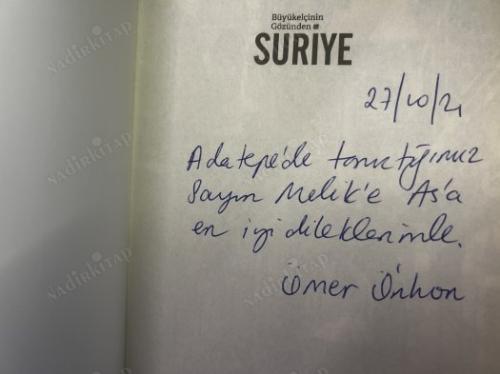 Büyükelçinin
Gözünden
SURİYE
27/10/21
Adatepe'de tanıştığımız
Sayın Melik'e As'a
en iyi dileklerimle.
Ömer Önhon
NADİRKİTAP
NADİRKİTAP
NADİRKİTAP
NADİRKİTAP
NADİRKİTAP